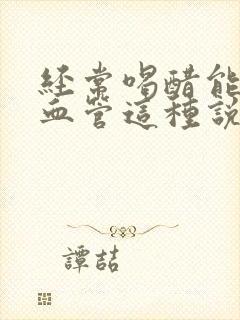 经常喝醋能
血管這種說
譚喆